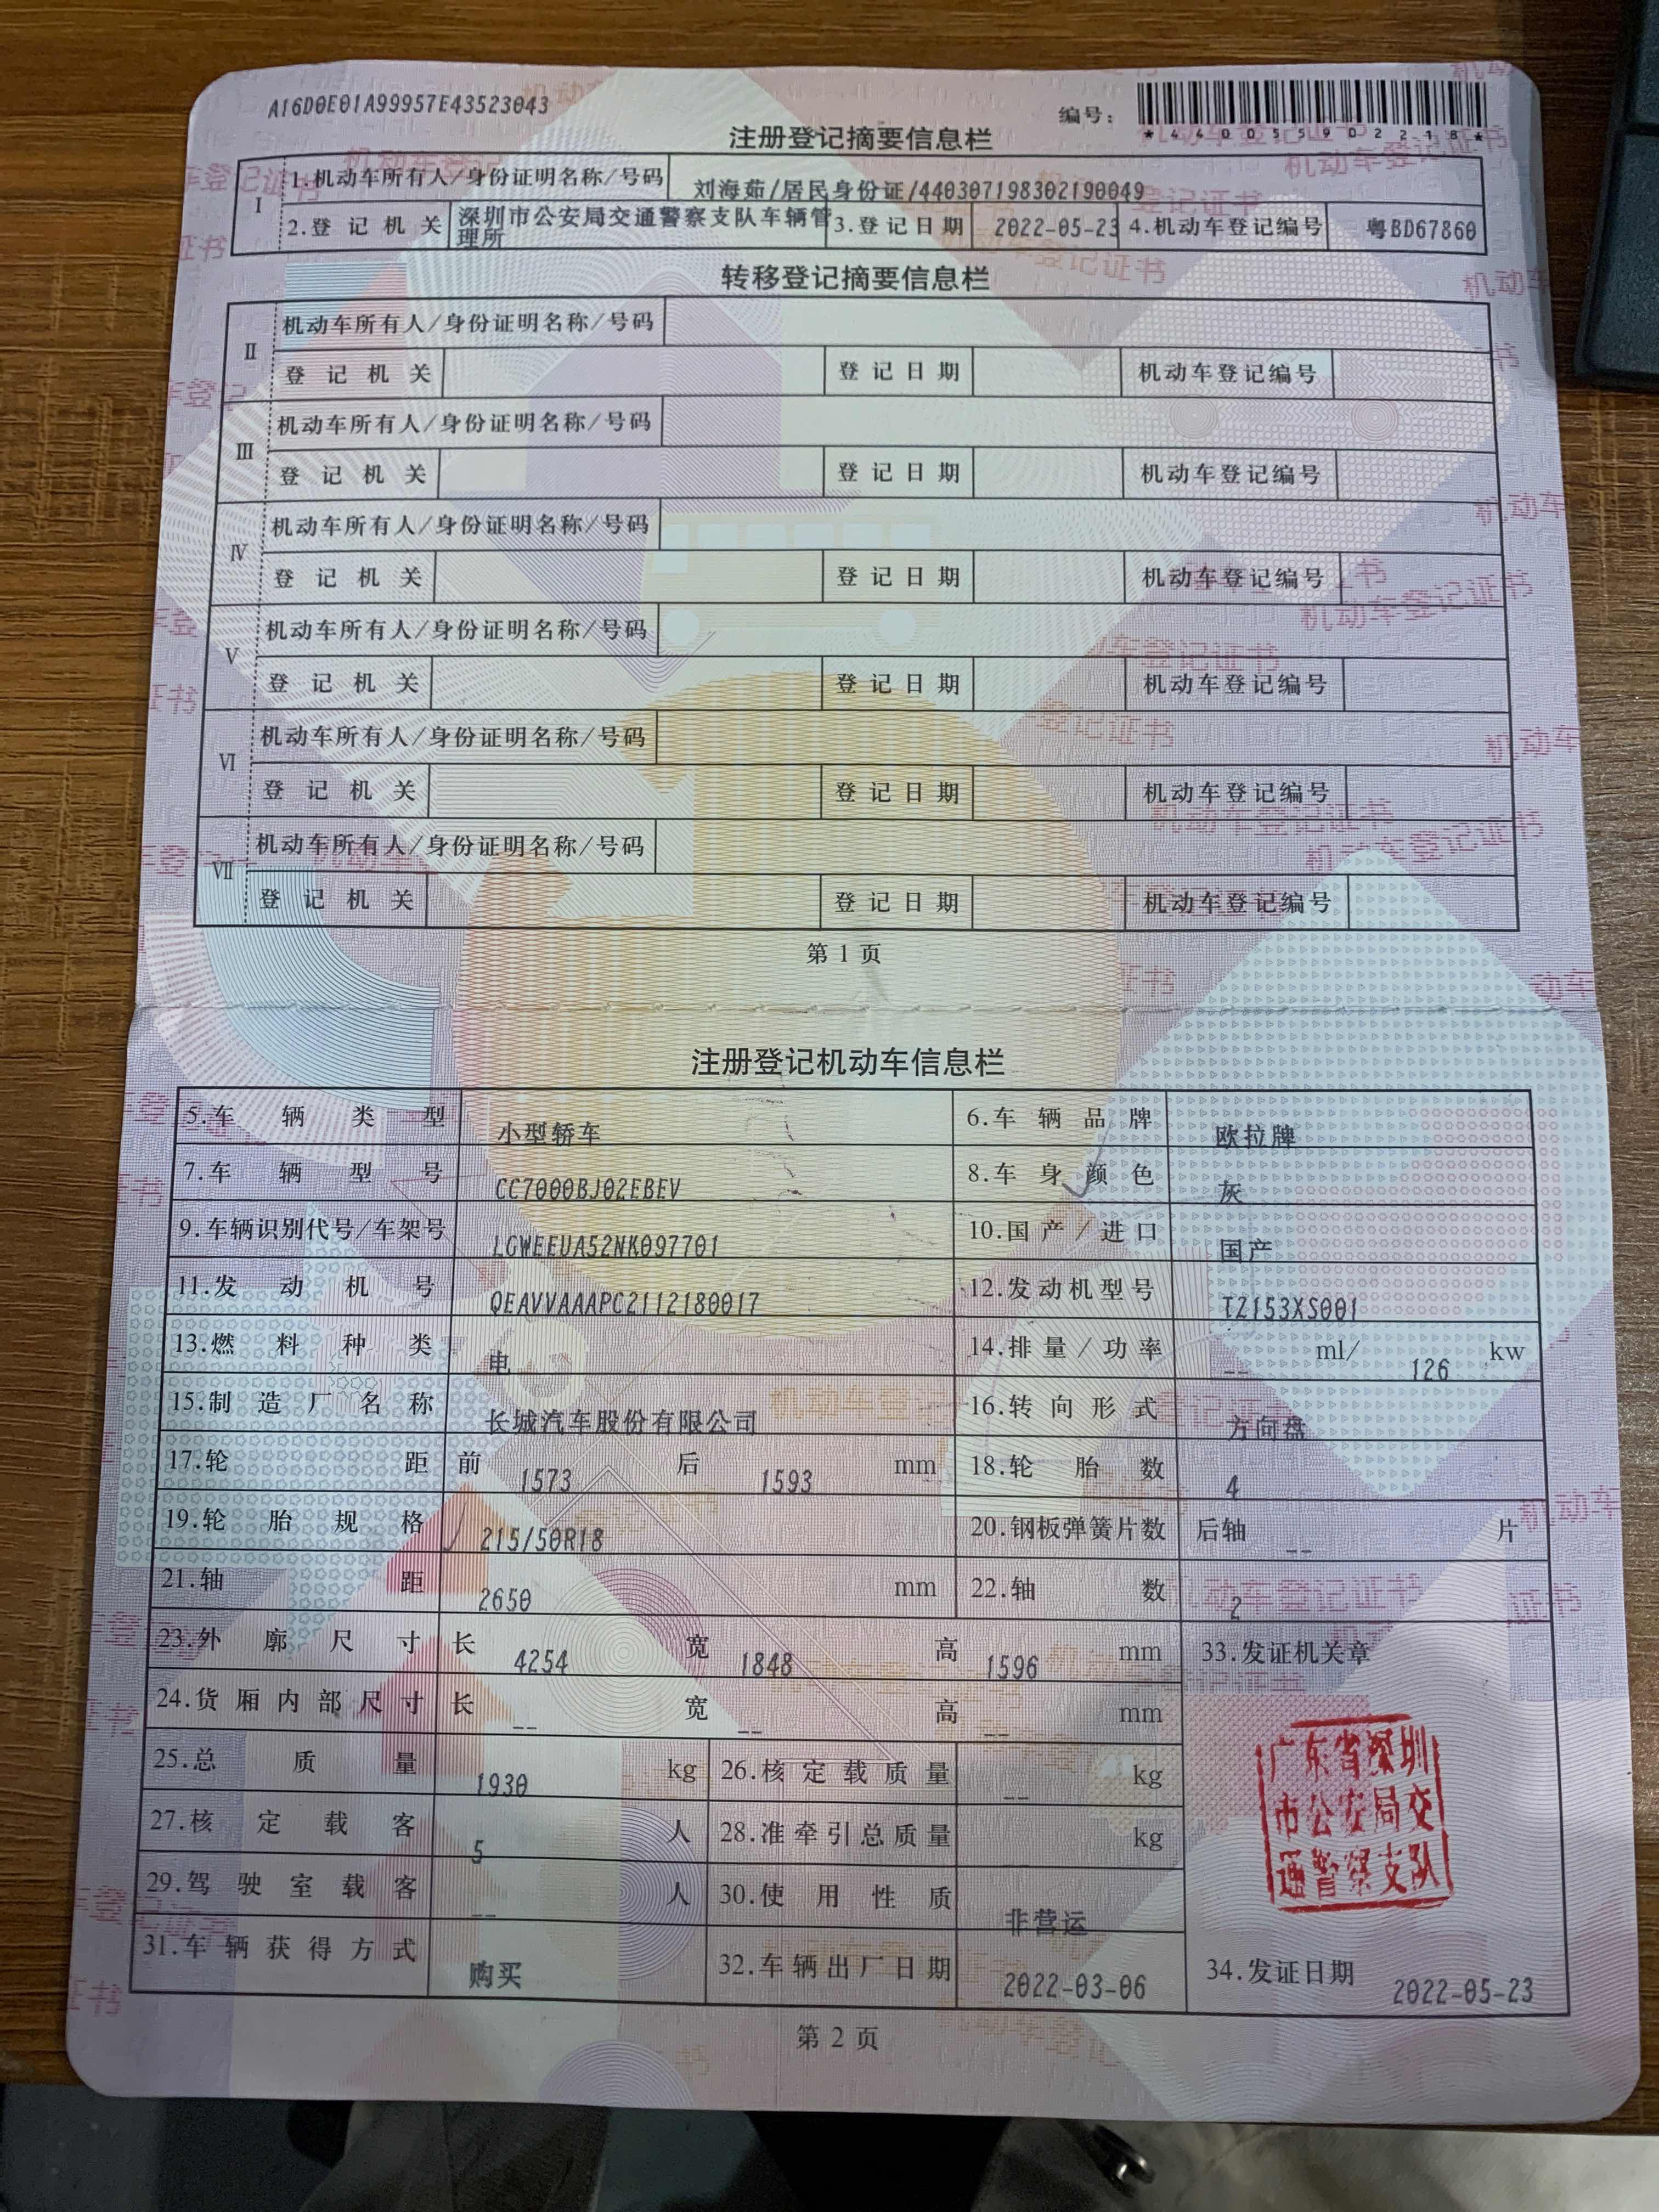 A16D0E01A99957E43523043
编号：
*440055902218*
注册登记摘要信息栏
I
1.机动车所有人/身份证明名称/号码 刘海茹/居民身份证/440307198302190049
2.登记机关 深圳市公安局交通警察支队车辆管理所 3.登记日期 2022-05-23 4.机动车登记编号 粤BD67860
转移登记摘要信息栏
II
机动车所有人/身份证明名称/号码
登记机关 登记日期 机动车登记编号
III
机动车所有人/身份证明名称/号码
登记机关 登记日期 机动车登记编号
IV
机动车所有人/身份证明名称/号码
登记机关 登记日期 机动车登记编号
V
机动车所有人/身份证明名称/号码
登记机关 登记日期 机动车登记编号
VI
机动车所有人/身份证明名称/号码
登记机关 登记日期 机动车登记编号
VII
机动车所有人/身份证明名称/号码
登记机关 登记日期 机动车登记编号
第1页
注册登记机动车信息栏
5.车辆类型 小型轿车 6.车辆品牌 欧拉牌
7.车辆型号 CC7000BJ02EBEV 8.车身颜色 灰
9.车辆识别代号/车架号 LGWEEUA52NK097701 10.国产/进口 国产
11.发动机号 QEAVVAAAPC2112180017 12.发动机型号 TZ153XS001
13.燃料种类 电 14.排量/功率 -- ml/ 126 kw
15.制造厂名称 长城汽车股份有限公司 16.转向形式 方向盘
17.轮距 前 1573 后 1593 mm 18.轮胎数 4
19.轮胎规格 215/50R18 20.钢板弹簧片数 后轴 -- 片
21.轴距 2650 mm 22.轴数 2
23.外廓尺寸 长 4254 宽 1848 高 1596 mm 33.发证机关章
24.货厢内部尺寸 长 -- 宽 -- 高 -- mm
25.总质量 1930 kg 26.核定载质量 -- kg
27.核定载客 5 人 28.准牵引总质量 -- kg
29.驾驶室载客 -- 人 30.使用性质 非营运
31.车辆获得方式 购买 32.车辆出厂日期 2022-03-06 34.发证日期 2022-05-23
广东省深圳
市公安局交
通警察支队
第2页